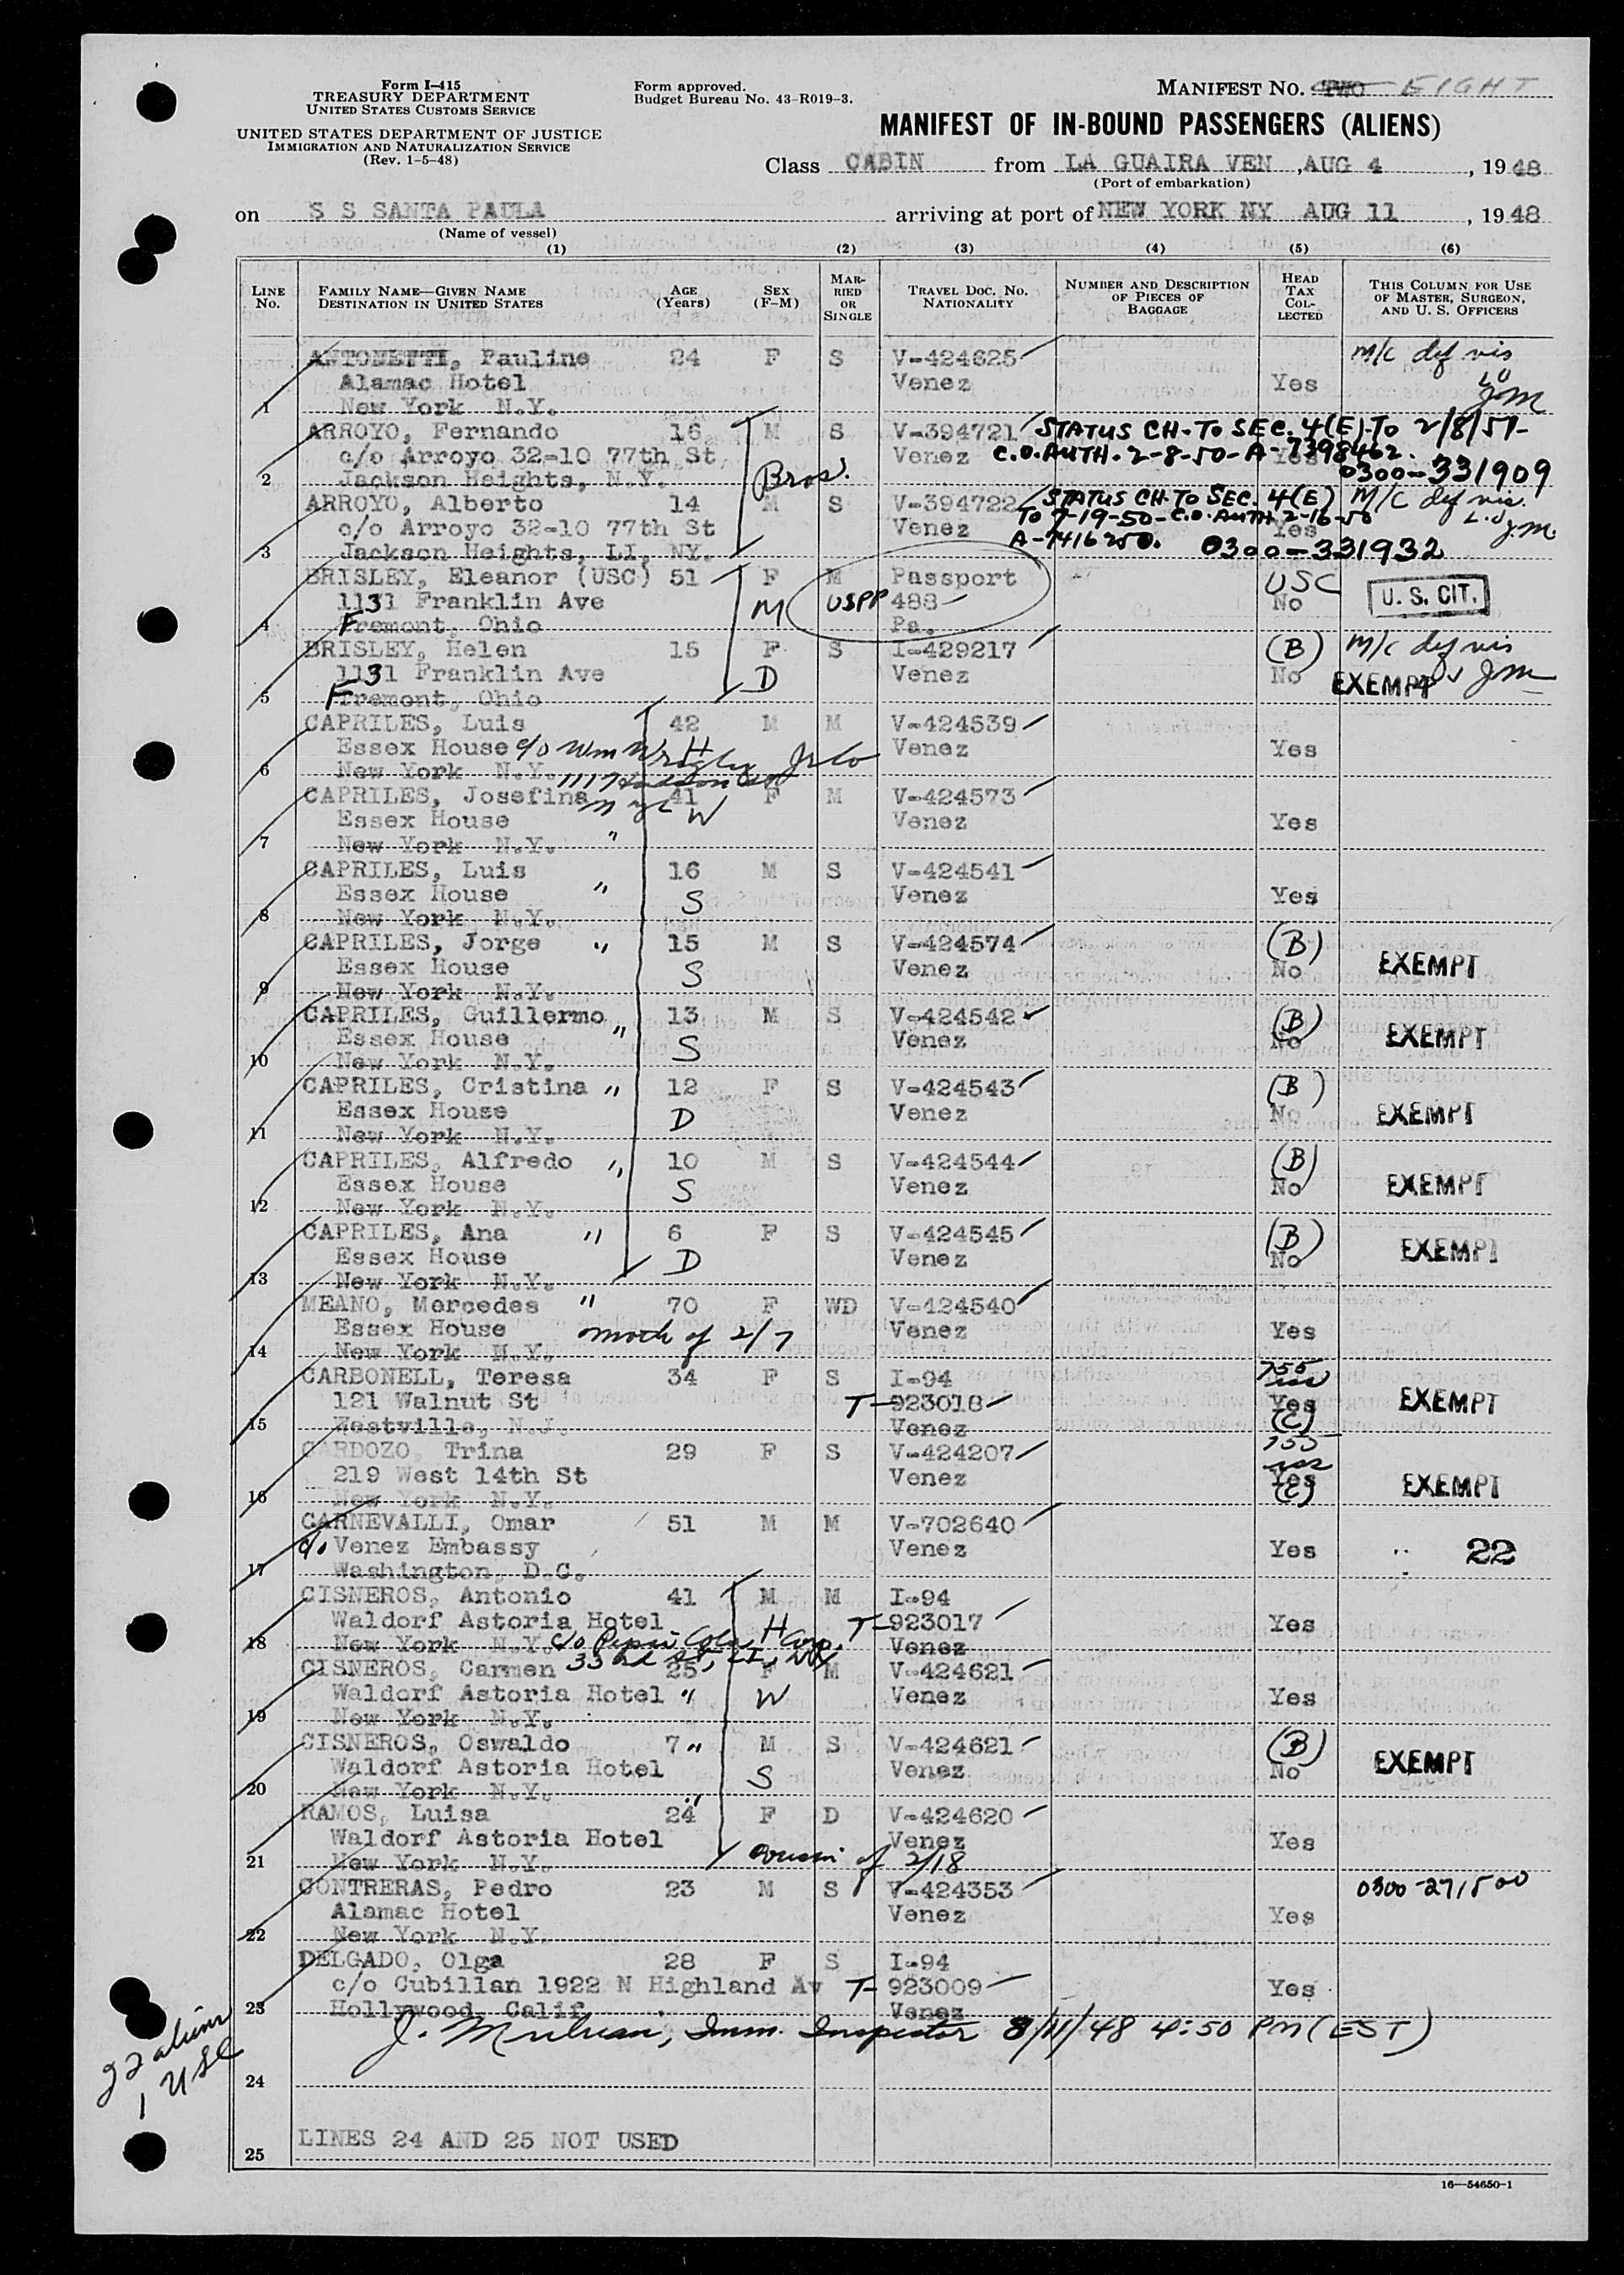 Form I-415
TREASURY DEPARTMENT
UNITED STATES CUSTOMS SERVICE
UNITED STATES DEPARTMENT OF JUSTICE
IMMIGRATION AND NATURALIZATION SERVICE
(Rev. 1-5-48)
Form approved.
Budget Bureau No. 43-R019-3.
MANIFEST NO. TWO EIGHT
MANIFEST OF IN-BOUND PASSENGERS (ALIENS)
Class CABIN from LA GUAIRA VEN , AUG 4 , 1948
(Port of embarkation)
on S S SANTA PAULA arriving at port of NEW YORK NY AUG 11 , 1948
(Name of vessel)
(1) (2) (3) (4) (5) (6)
LINE No. FAMILY NAME—GIVEN NAME DESTINATION IN UNITED STATES AGE (Years) SEX (F-M) MARRIED OR SINGLE TRAVEL DOC. NO. NATIONALITY NUMBER AND DESCRIPTION OF PIECES OF BAGGAGE HEAD TAX COLLECTED THIS COLUMN FOR USE OF MASTER, SURGEON, AND U. S. OFFICERS
ANTONETTI, Pauline 24 F S V-424625 m/c def vis
Alamac Hotel Venez Yes
1 New York N.Y. JM
ARROYO, Fernando 16 M S V-394721 STATUS CH. TO SEC. 4(E) TO 2/8/51-
c/o Arroyo 32-10 77th St Venez C.O. AUTH. 2-8-50-A-7398462. Yes
2 Jackson Heights, N.Y. Bros. 0300-331909
ARROYO, Alberto 14 M S V-394722 STATUS CH. TO SEC. 4(E) M/C def vis.
c/o Arroyo 32-10 77th St Venez TO 7-19-50-C.O. AUTH 2-16-50 Yes J.M.
3 Jackson Heights, LI, NY. A-7416250. 0300-331932
BRISLEY, Eleanor (USC) 51 F M Passport USC
1131 Franklin Ave M USPP 488 No U. S. CIT.
4 Fremont, Ohio Pa.
BRISLEY, Helen 15 F S I-429217 (B) M/c def vis
1131 Franklin Ave D Venez No EXEMPT JM
5 Fremont, Ohio
CAPRILES, Luis 42 M M V-424539
Essex House c/o Wm Wrigley Jr Co H Venez Yes
6 New York N.Y. 111
CAPRILES, Josefina NYC 41 F M V-424573
Essex House W Venez Yes
7 New York N.Y. "
CAPRILES, Luis 16 M S V-424541
Essex House " S Venez Yes
8 New York N.Y.
CAPRILES, Jorge " 15 M S V-424574 (B)
Essex House S Venez No EXEMPT
9 New York N.Y.
CAPRILES, Guillermo 13 M S V-424542 (B)
Essex House " S Venez No EXEMPT
10 New York N.Y.
CAPRILES, Cristina " 12 F S V-424543 (B)
Essex House D Venez No EXEMPT
11 New York N.Y.
CAPRILES, Alfredo " 10 M S V-424544 (B)
Essex House S Venez No EXEMPT
12 New York N.Y.
CAPRILES, Ana " 6 F S V-424545 (B)
Essex House D Venez No EXEMPT
13 New York N.Y.
MEANO, Mercedes " 70 F WD V-424540
Essex House moth of 2/7 Venez Yes
14 New York N.Y.
CARBONELL, Teresa 34 F S I-94 755
121 Walnut St T-923018 Yes EXEMPT
15 Westville, N.J. Venez (C)
CARDOZO, Trina 29 F S V-424207 755
219 West 14th St Venez Yes EXEMPT
16 New York N.Y. (C)
CARNEVALLI, Omar 51 M M V-702640
c/o Venez Embassy Venez Yes 22
17 Washington, D.C.
CISNEROS, Antonio 41 M M I-94
Waldorf Astoria Hotel H T-923017 Yes
18 New York N.Y. c/o Pepsi Cola Corp. Venez
CISNEROS, Carmen 33rd St, LI, NY 25 F M V-424621
Waldorf Astoria Hotel " W Venez Yes
19 New York N.Y.
CISNEROS, Oswaldo 7 " M S V-424621 (B)
Waldorf Astoria Hotel S Venez No EXEMPT
20 New York N.Y. "
RAMOS, Luisa 24 F D V-424620
Waldorf Astoria Hotel Venez Yes
21 New York N.Y. cousin of 2/18
CONTRERAS, Pedro 23 M S V-424353 0300-271500
Alamac Hotel Venez Yes
22 New York N.Y.
DELGADO, Olga 28 F S I-94
c/o Cubillan 1922 N Highland Av T-923009 Yes
23 Hollywood, Calif. Venez
J. Mulvean, Imm. Inspector 8/11/48 4:50 PM (EST)
22 aliens
1 USC
24
LINES 24 AND 25 NOT USED
25
16—54650-1